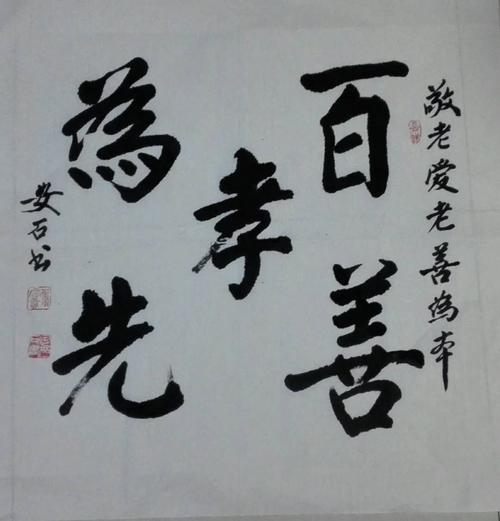 敬老爱老善為本
百善
孝
為先
安石书